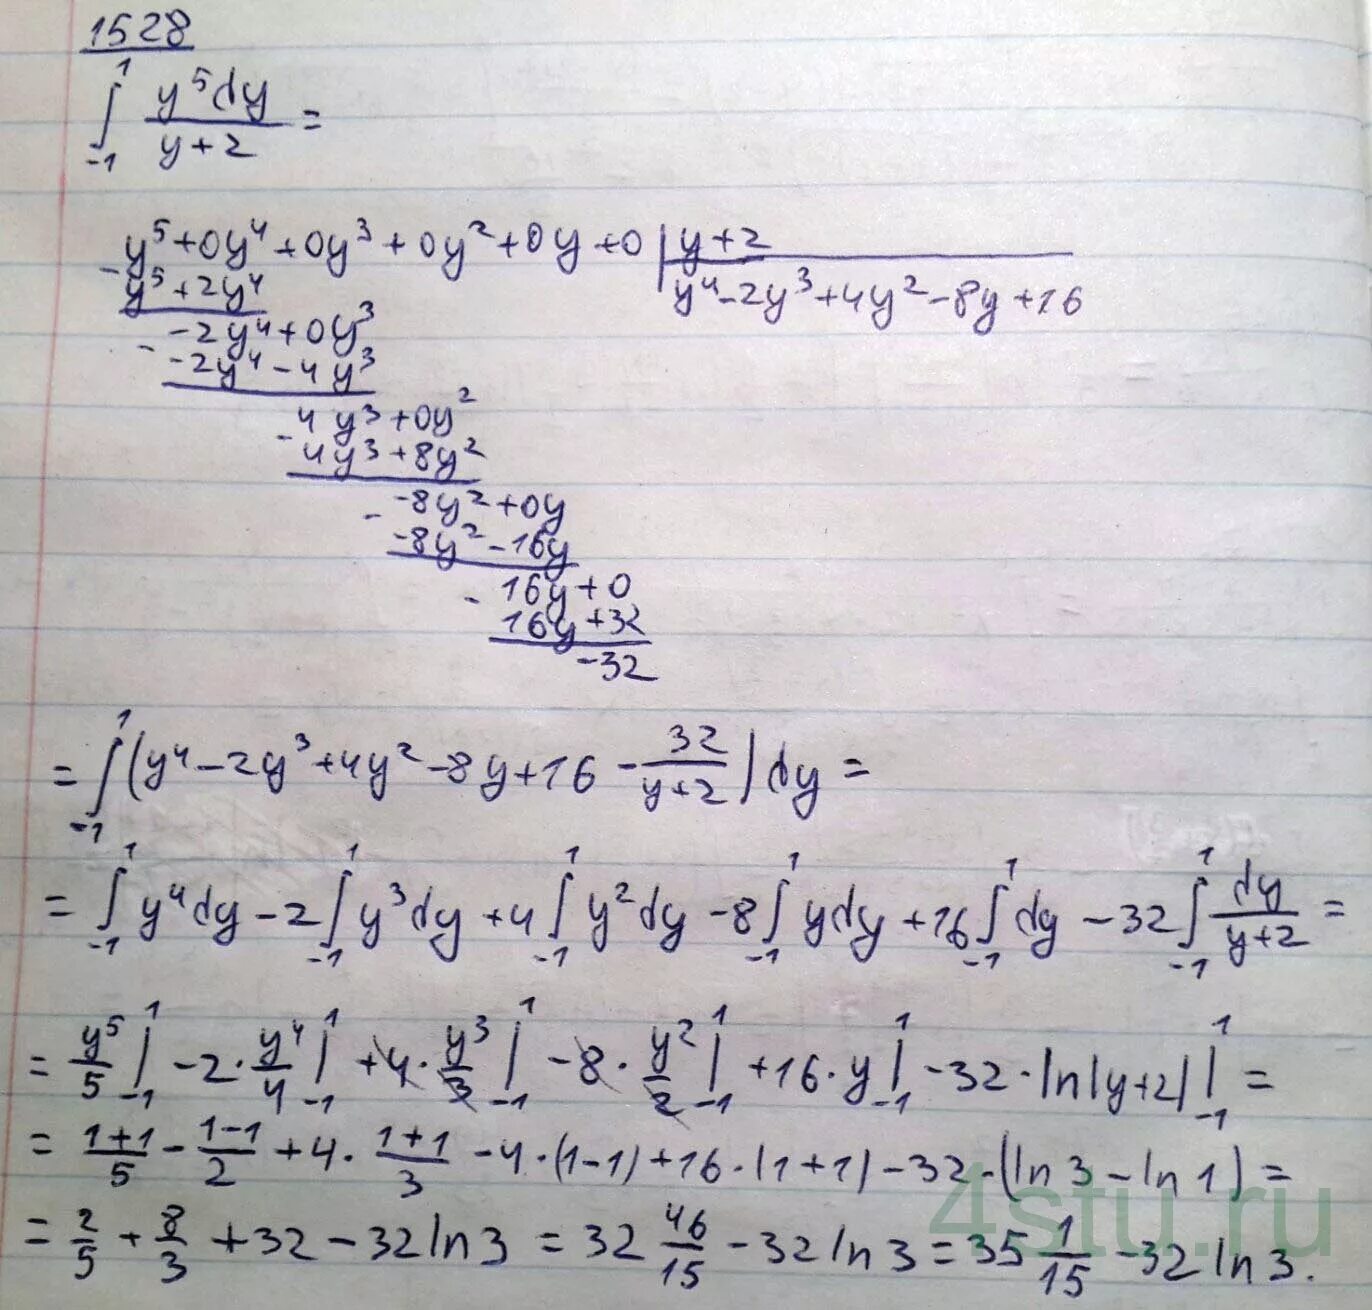 1528
∫_{-1}^{1} y⁵dy/(y+2) =
y⁵+0y⁴+0y³+0y²+0y+0 | y+2
- y⁵+2y⁴ | y⁴-2y³+4y²-8y+16
-2y⁴+0y³
- -2y⁴-4y³
4y³+0y²
- 4y³+8y²
-8y²+0y
- -8y²-16y
16y+0
- 16y+32
-32
= ∫_{-1}^{1} (y⁴-2y³+4y²-8y+16 - 32/(y+2)) dy =
= ∫_{-1}^{1} y⁴dy - 2∫_{-1}^{1} y³dy + 4∫_{-1}^{1} y²dy - 8∫_{-1}^{1} ydy + 16∫_{-1}^{1} dy - 32∫_{-1}^{1} dy/(y+2) =
= y⁵/5|_{-1}^{1} - 2·y⁴/4|_{-1}^{1} + 4·y³/3|_{-1}^{1} - 8·y²/2|_{-1}^{1} + 16·y|_{-1}^{1} - 32·ln|y+2||_{-1}^{1} =
= (1+1)/5 - (1-1)/2 + 4·(1+1)/3 - 4·(1-1) + 16·(1+1) - 32·(ln3 - ln1) =
= 2/5 + 8/3 + 32 - 32ln3 = 32 46/15 - 32ln3 = 35 1/15 - 32ln3.
4stu.ru